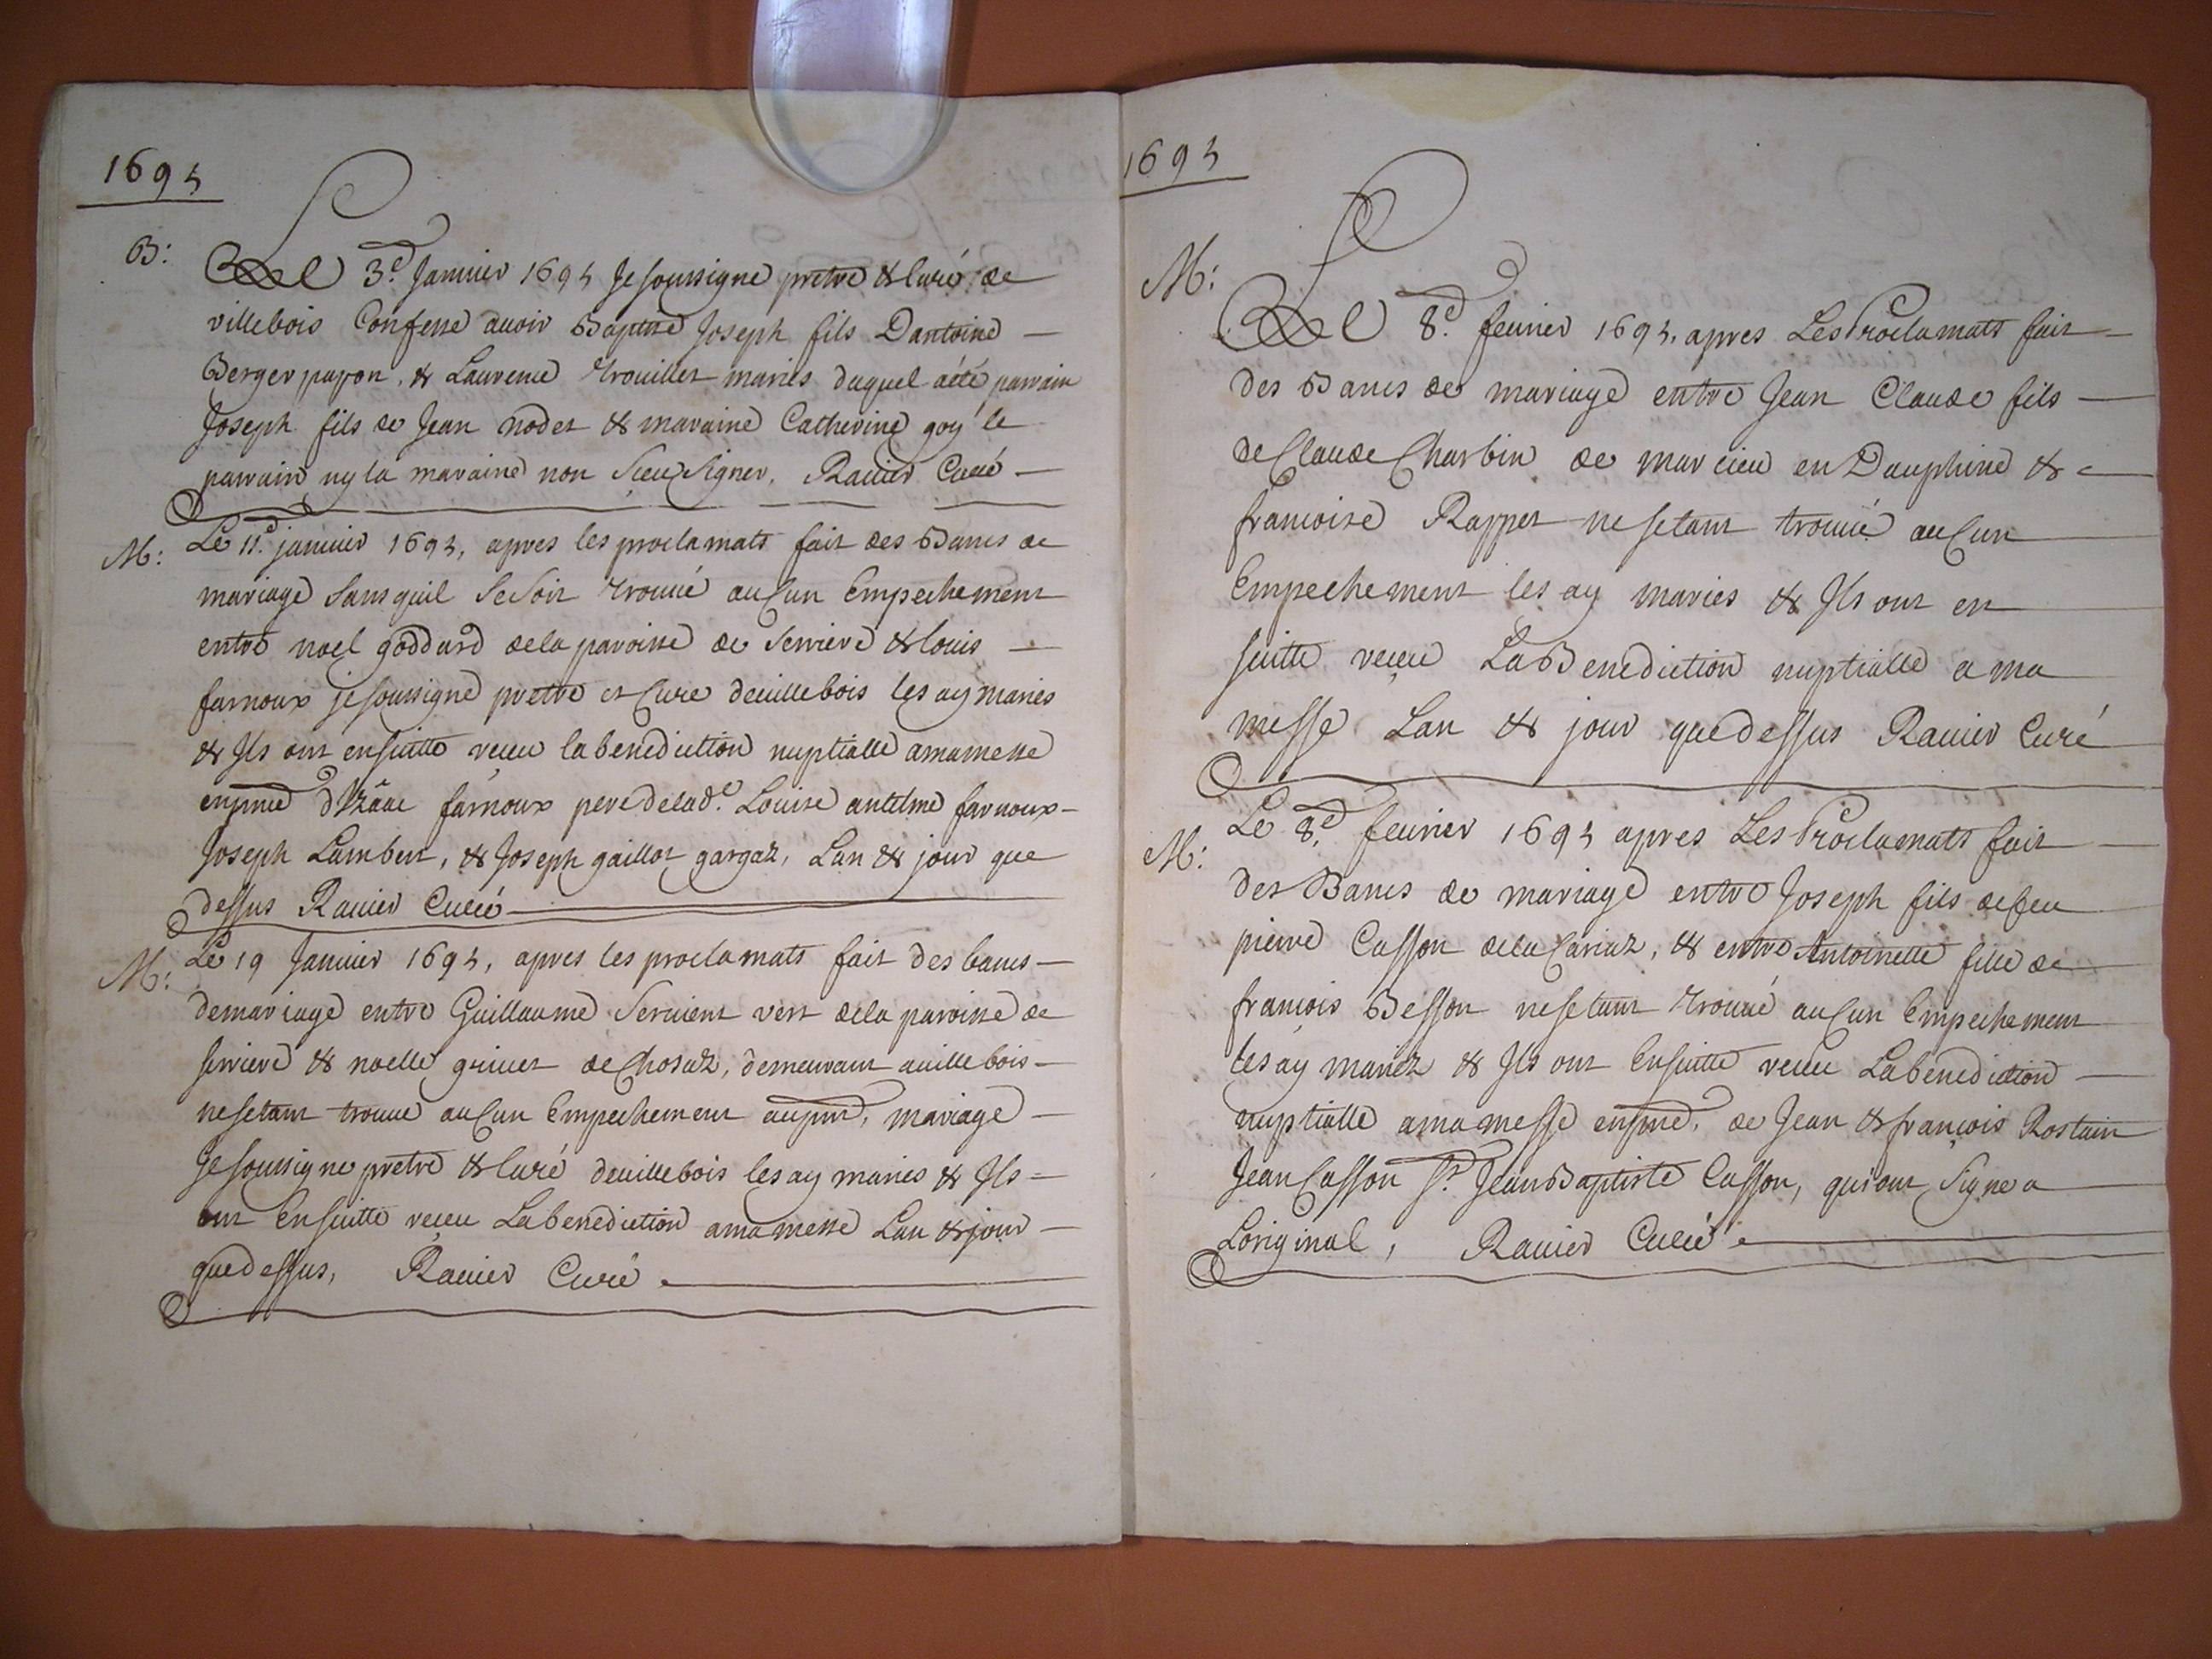 1695
B:
Le 3.e Janvier 1695 Je soussigne pretre & Curé de
villebois Confesse avoir Baptise Joseph fils Dantoine —
Berger papon, & Laurence trouillet mariés duquel a été parrain
Joseph fils de Jean nodet & maraine Catherine goy le
parrain ny la maraine non sceu signer. Ravier Curé —
M:
Le 11.e janvier 1695, apres les proclamats fait des Bancs de
mariage sans quil se soit trouvé auCun Empechement
entre noel goddard de la paroisse de Serriere & louis —
farnoux je soussigne pretre et Cure de villebois les ay mariés
& Ils ont ensuitte receu la benediction nuptialle a ma messe
en pnce d'Izâac farnoux pere de lad.e Louise antelme farnoux —
Joseph Lambert, & Joseph gaillot gargaz, Lan & jour que
dessus Ravier Curé
M:
Le 19 Janvier 1695, apres les proclamats fait des bancs —
de mariage entre Guillaume Servient vert de la paroisse de
serriere & noelle grivet de Chosaz, demeurant a villebois —
ne setant trouve auCun Empechement au pnt, mariage —
Je soussigne pretre & Curé de villebois les ay mariés & Ils =
ont Ensuitte receu La benediction a ma messe Lan & jour —
que dessus, Ravier Curé
1695
M:
Le 8.e fevrier 1695, apres Les Proclamats fait —
des Bancs de mariage entre Jean Claude fils —
de Claude Charbin de marcieu en Dauphiné & —
francoise Rappet ne setant trouvé auCun
Empechement les ay mariés & Ils ont en
suitte receu La Benediction nuptialle a ma
messe Lan & jour que dessus Ravier Curé
M:
Le 8.e fevrier 1695 apres Les Proclamats fait —
des Bancs de mariage entre Joseph fils de feu
pierre Casson de la Cariaz, & entre Antoinette fille de
francois Besson ne setant trouvé auCun Empechement
les ay mariéz & Ils ont Ensuitte receu La benediction —
nuptialle a ma messe en pnce, de Jean & françois Rostain
Jean Casson Sr. Jean Baptiste Casson, qui ont Signe a
Loriginal, Ravier Curé